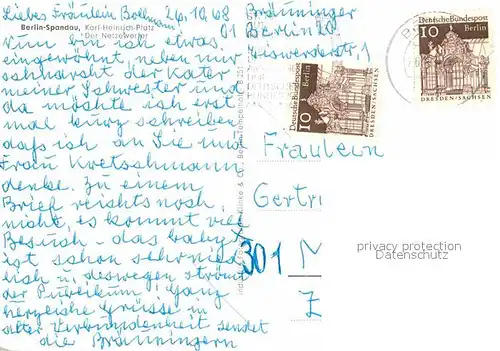 Liebes Fräulein Bollmann, 26.10.68
Berlin-Spandau, Karl-Heinrich-Platz
"Der Netzewerfer"
Nun bin ich etwas
eingewöhnt, neben mir
schnarcht der Kater
meiner Schwester und
da möchte ich erst
mal kurz schreiben
daß ich an Sie und
Frau Kretschmann
denke. Zu einem
Brief reichts noch
nicht, es kommt viel
Besuch - das baby
ist schon sehr nied-
lich u. deswegen strömt
das Publikum. Ganz
herzliche Grüsse in
alter Verbundenheit sendet
die Bräuningern
01 Bräuninger
Berlin 20
Deutsche Bundespost
Berlin
10
DRESDEN/SACHSEN
Deutsche Bundespost
Berlin
10
DRESDEN/SACHSEN
Berlin-Tempelhof
Fräulein
Gertr
301 M
Z
privacy protection
Datenschutz